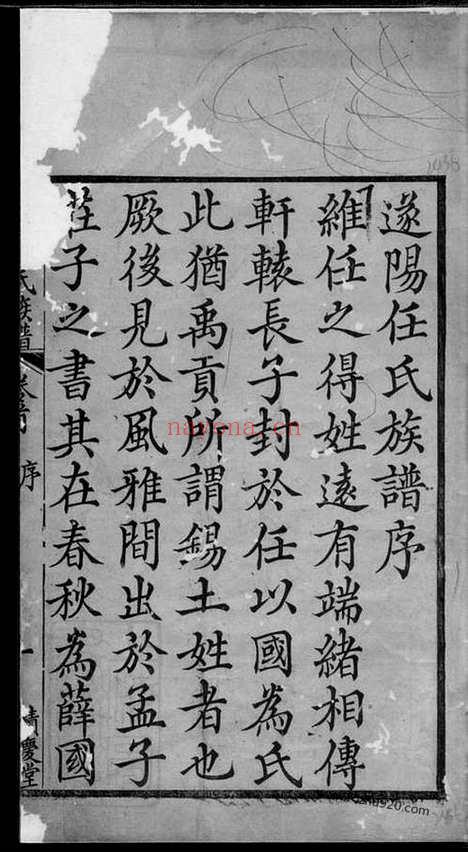 遂陽任氏族譜序
維任之得姓遠有端緒相傳
軒轅長子封於任以國為氏
此猶禹貢所謂錫土姓者也
厥後見於風雅間出於孟子
莊子之書其在春秋為薛國
氏族譜 卷首 序 一 慶堂
nayena.cn
1038